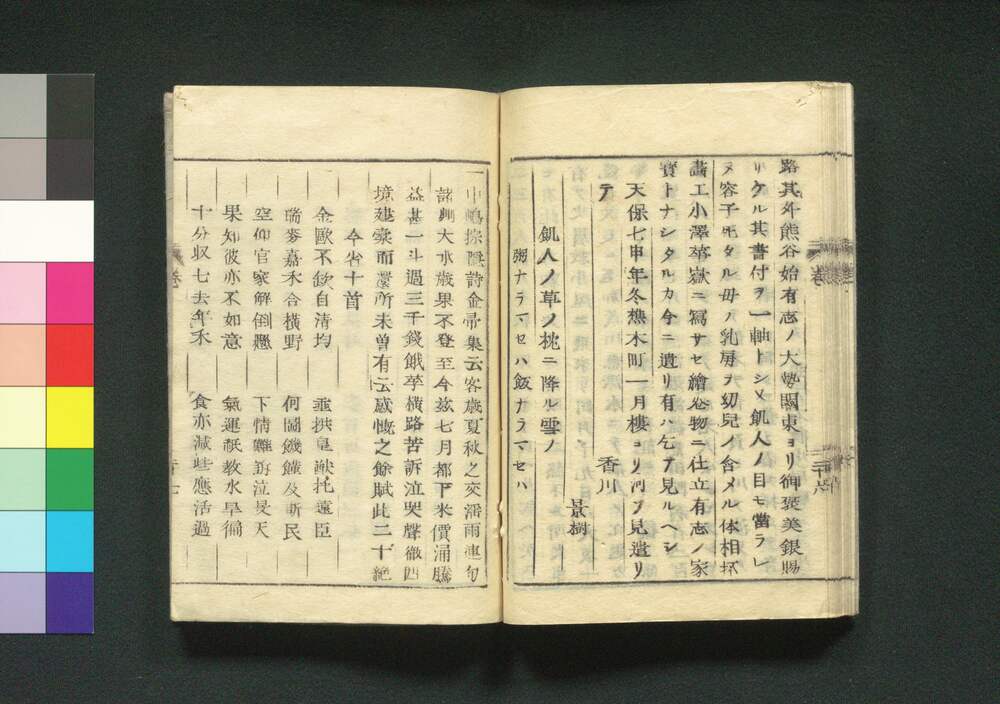 路其外熊谷始有志ノ大勢関東ヨリ御褒美銀賜
リケル其書付ヲ一軸トシメ飢人ノ目モ當ラレ
ヌ容子モタルル毋ノ乳房ヲ幼児ノ含メル体相抔
畵工小澤華嶽ニ寫サセ繪卷物ニ仕立有志ノ家
寳トナシタルカ今ニ遺リ有ハ乞テ見ルヘシ
天保七申年冬樵木町一月樓ヨリ河ヲ見遣リ
テ
香川
景樹
飢人ノ草ノ枕ニ降ル雪ノ
粥ナラマセハ飯ナラマセハ
一中嶋 詩金帚集云客歳夏秋之交滛雨連旬
大水歳果不登至今玆七月都下米價涌騰
益甚一斗過三千錢餓莩横路苦訴泣哭聲徹四
境建豪而還所未曽有云感慨之餘賦此二十絶
今省十首
金歐不飲自清均 垂拱皇猷托遠臣
瑞麥嘉禾合横野 何圖饑饉及斯民
空仰官家解倒懸 下情難訴泣旻天
果知彼亦不如意 氣運祇教水旱偏
十分収七去年禾 食亦減些應活過